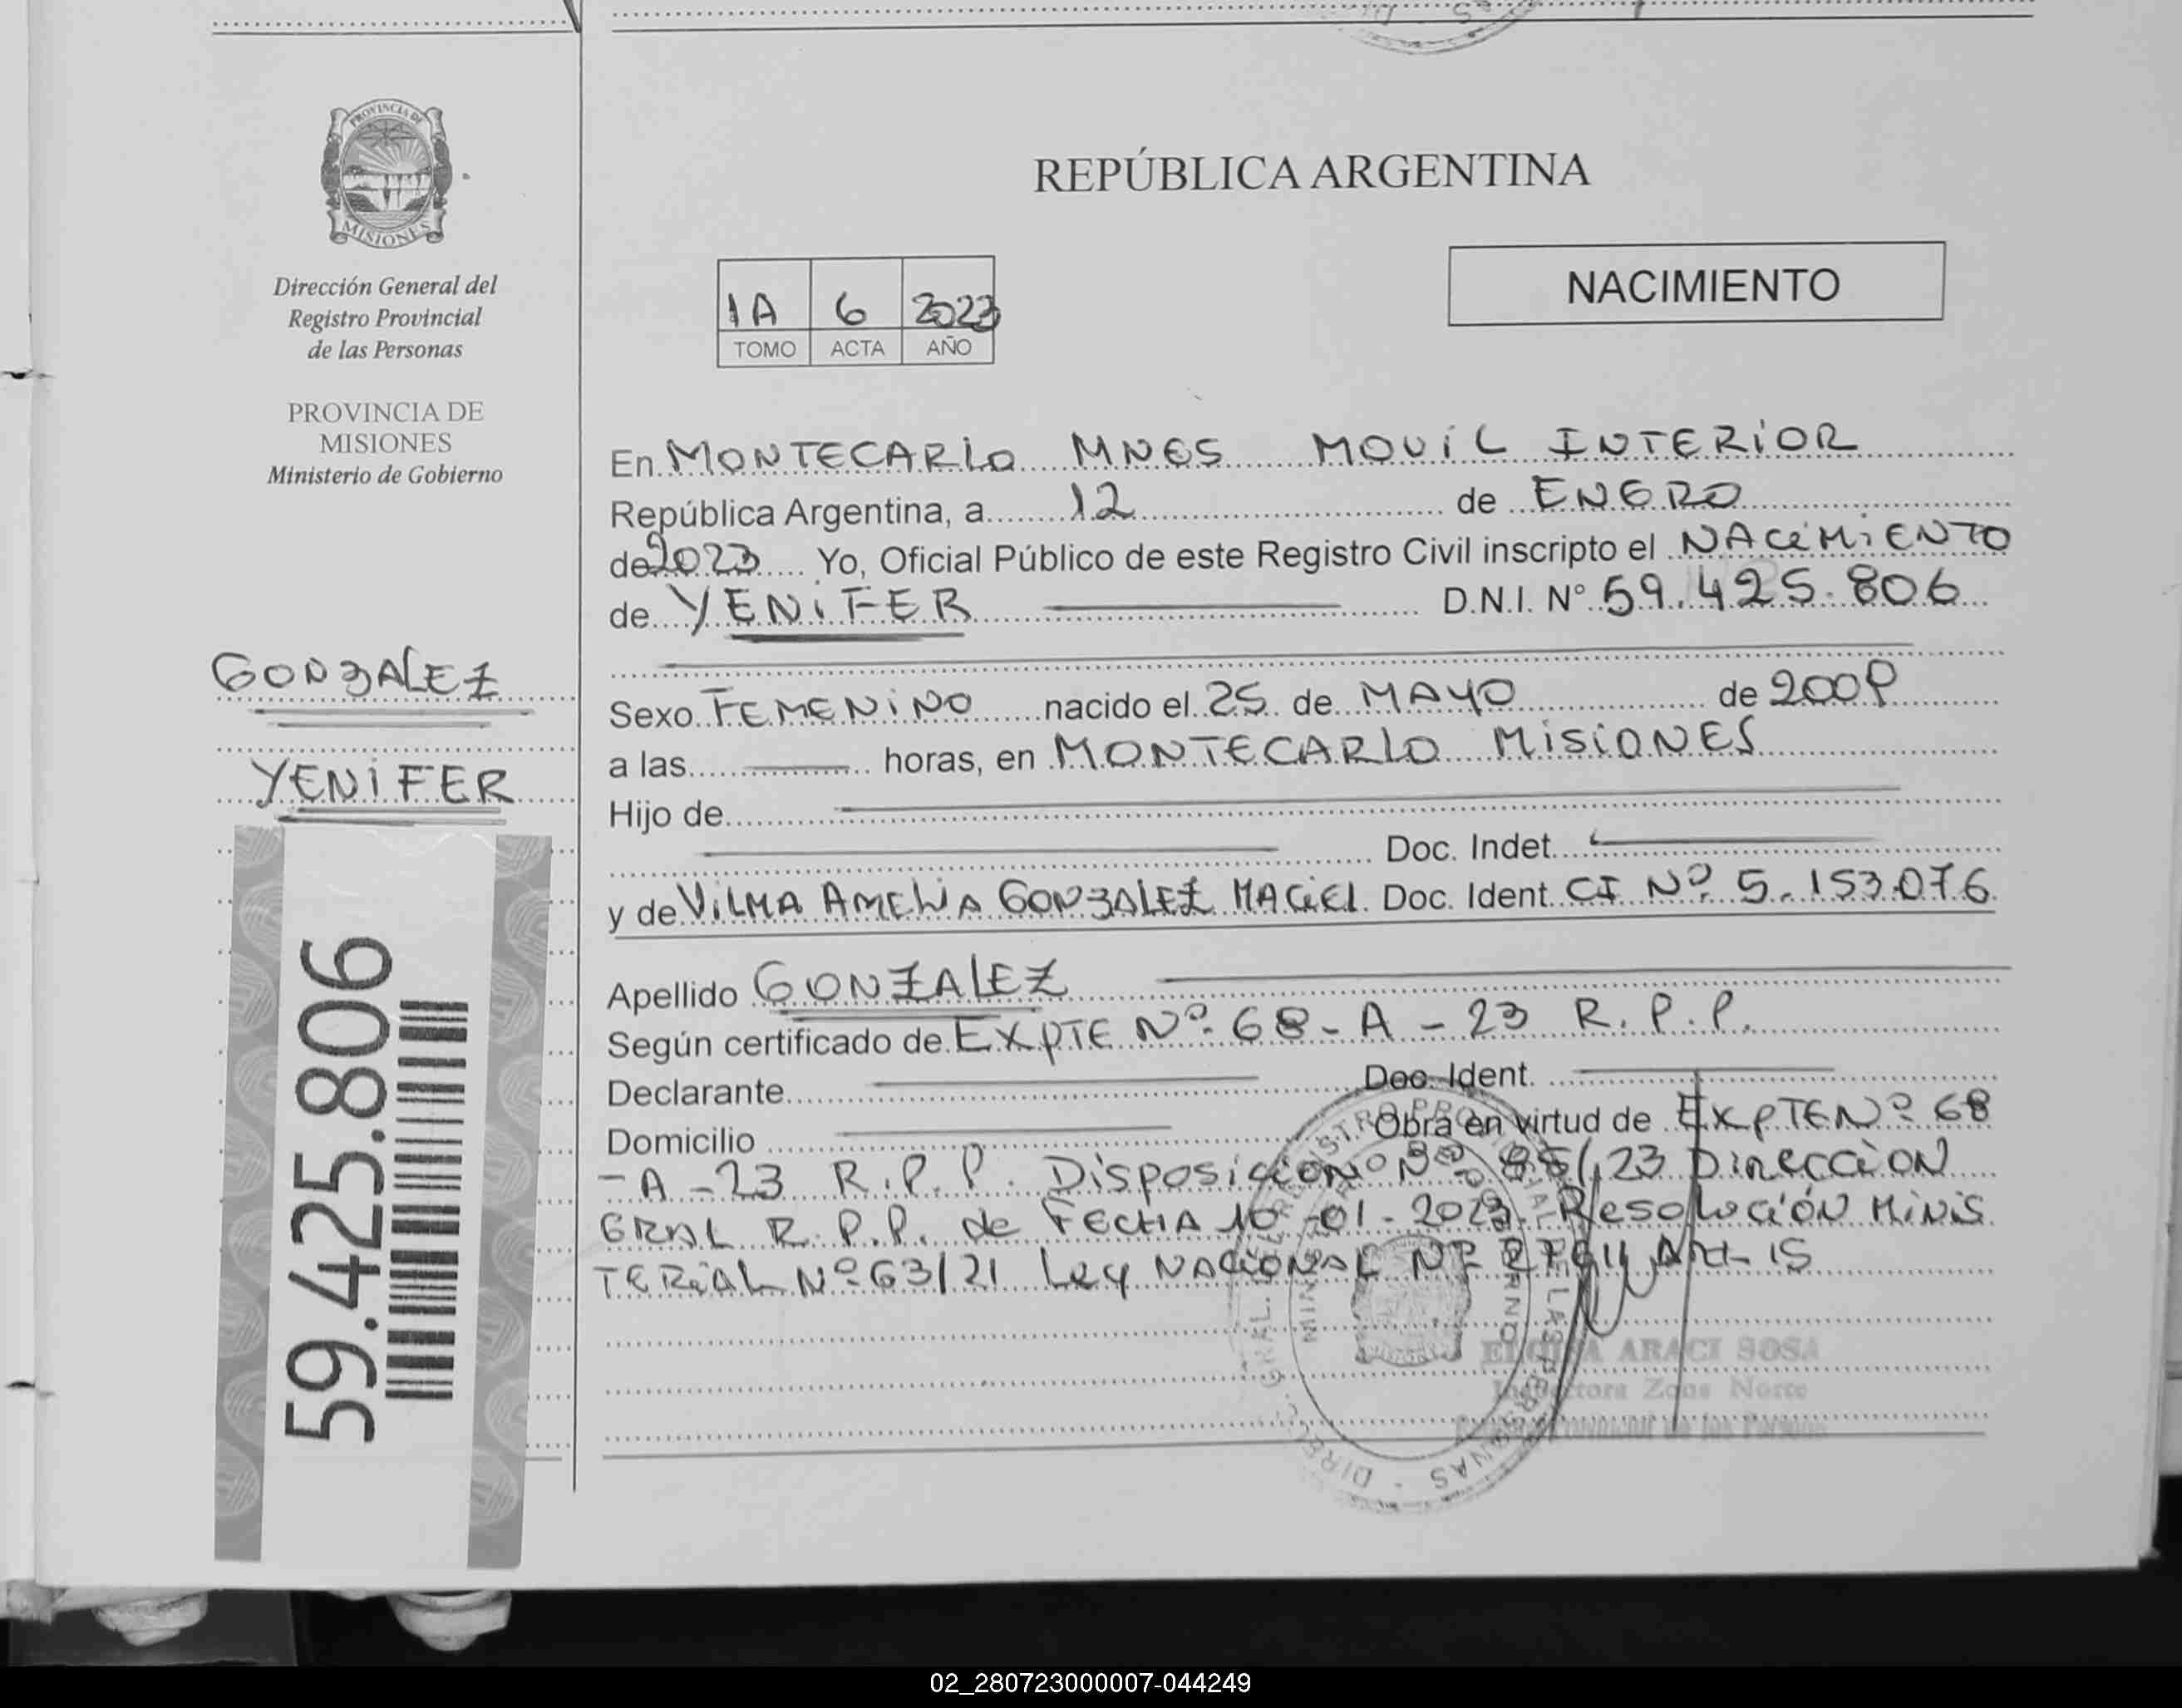 PROVINCIA DE
MISIONES
Dirección General del
Registro Provincial
de las Personas
PROVINCIA DE
MISIONES
Ministerio de Gobierno
GONZALEZ
YENIFER
59.425.806
REPÚBLICA ARGENTINA
1A 6 2023
TOMO ACTA AÑO
NACIMIENTO
En MONTECARLO MNES MOVIL INTERIOR
República Argentina, a 12 de ENERO
de 2023 Yo, Oficial Público de este Registro Civil inscripto el NACIMIENTO
de YENIFER D.N.I. N° 59.425.806
Sexo FEMENINO nacido el 25 de MAYO de
a las horas, en MONTECARLO MISIONES
Hijo de
Doc. Indet.
y de VILMA AMELIA GONZALEZ MACIEL Doc. Ident. CI Nº 5.153.076
Apellido GONZALEZ
Según certificado de EXPTE Nº 68-A-23 R.P.P.
Declarante Doc. Ident.
Domicilio Obra en virtud de EXPTE Nº 68
-A-23 R.P.P. DISPOSICION Nº /23 DIRECCION
GRAL R.P.P. de FECHA 10-01-2023 Resolución MINIS
TERIAL Nº 63/21 Ley NACIONAL Nº ART 15
ARACI SOSA
Inspectora Zona Norte
02_280723000007-044249